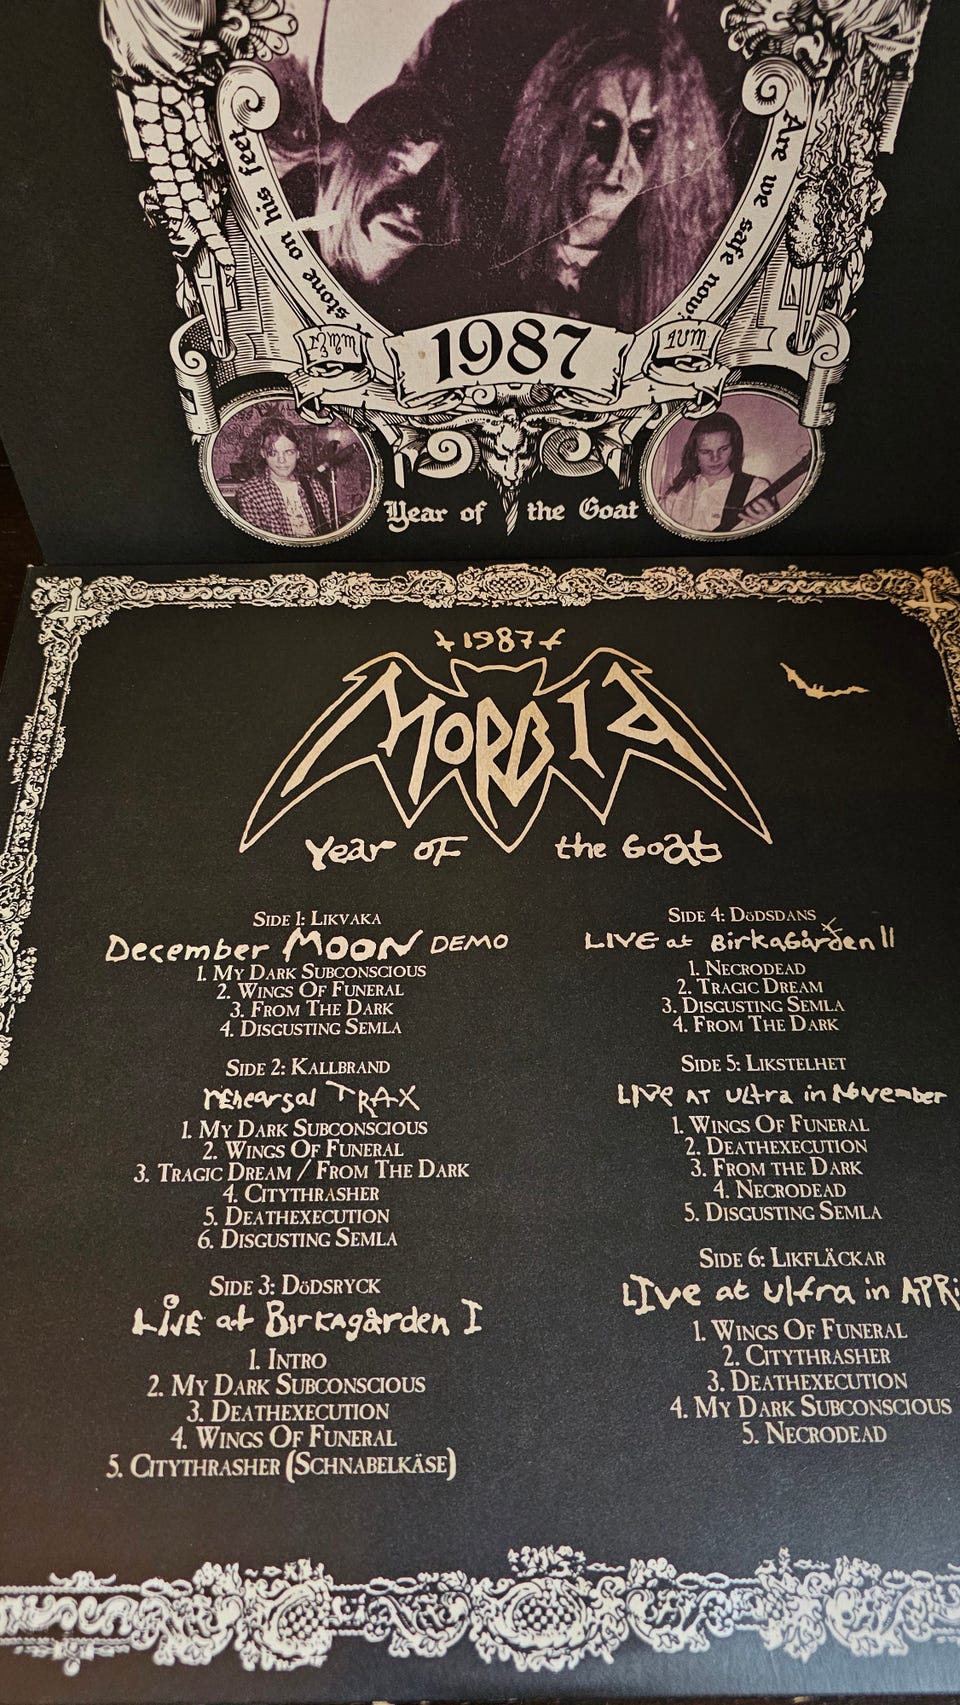 stone on his feet
Are we safe now?
1987
Year of the Goat
1987
MORBID
Year of the Goat
Side 1: Likvaka
December MOON DEMO
1. My Dark Subconscious
2. Wings Of Funeral
3. From The Dark
4. Disgusting Semla
Side 2: Kallbrand
rehearsal TRAX
1. My Dark Subconscious
2. Wings Of Funeral
3. Tragic Dream / From The Dark
4. Citythrasher
5. Deathexecution
6. Disgusting Semla
Side 3: Dödsryck
LiVE at Birkagården I
1. Intro
2. My Dark Subconscious
3. Deathexecution
4. Wings Of Funeral
5. Citythrasher (Schnabelkäse)
Side 4: Dödsdans
LIVE at Birkagården II
1. Necrodead
2. Tragic Dream
3. Disgusting Semla
4. From The Dark
Side 5: Likstelhet
LIVE AT Ultra in November
1. Wings Of Funeral
2. Deathexecution
3. From the Dark
4. Necrodead
5. Disgusting Semla
Side 6: Likfläckar
LIve at Ultra in APRi
1. Wings Of Funeral
2. Citythrasher
3. Deathexecution
4. My Dark Subconscious
5. Necrodead